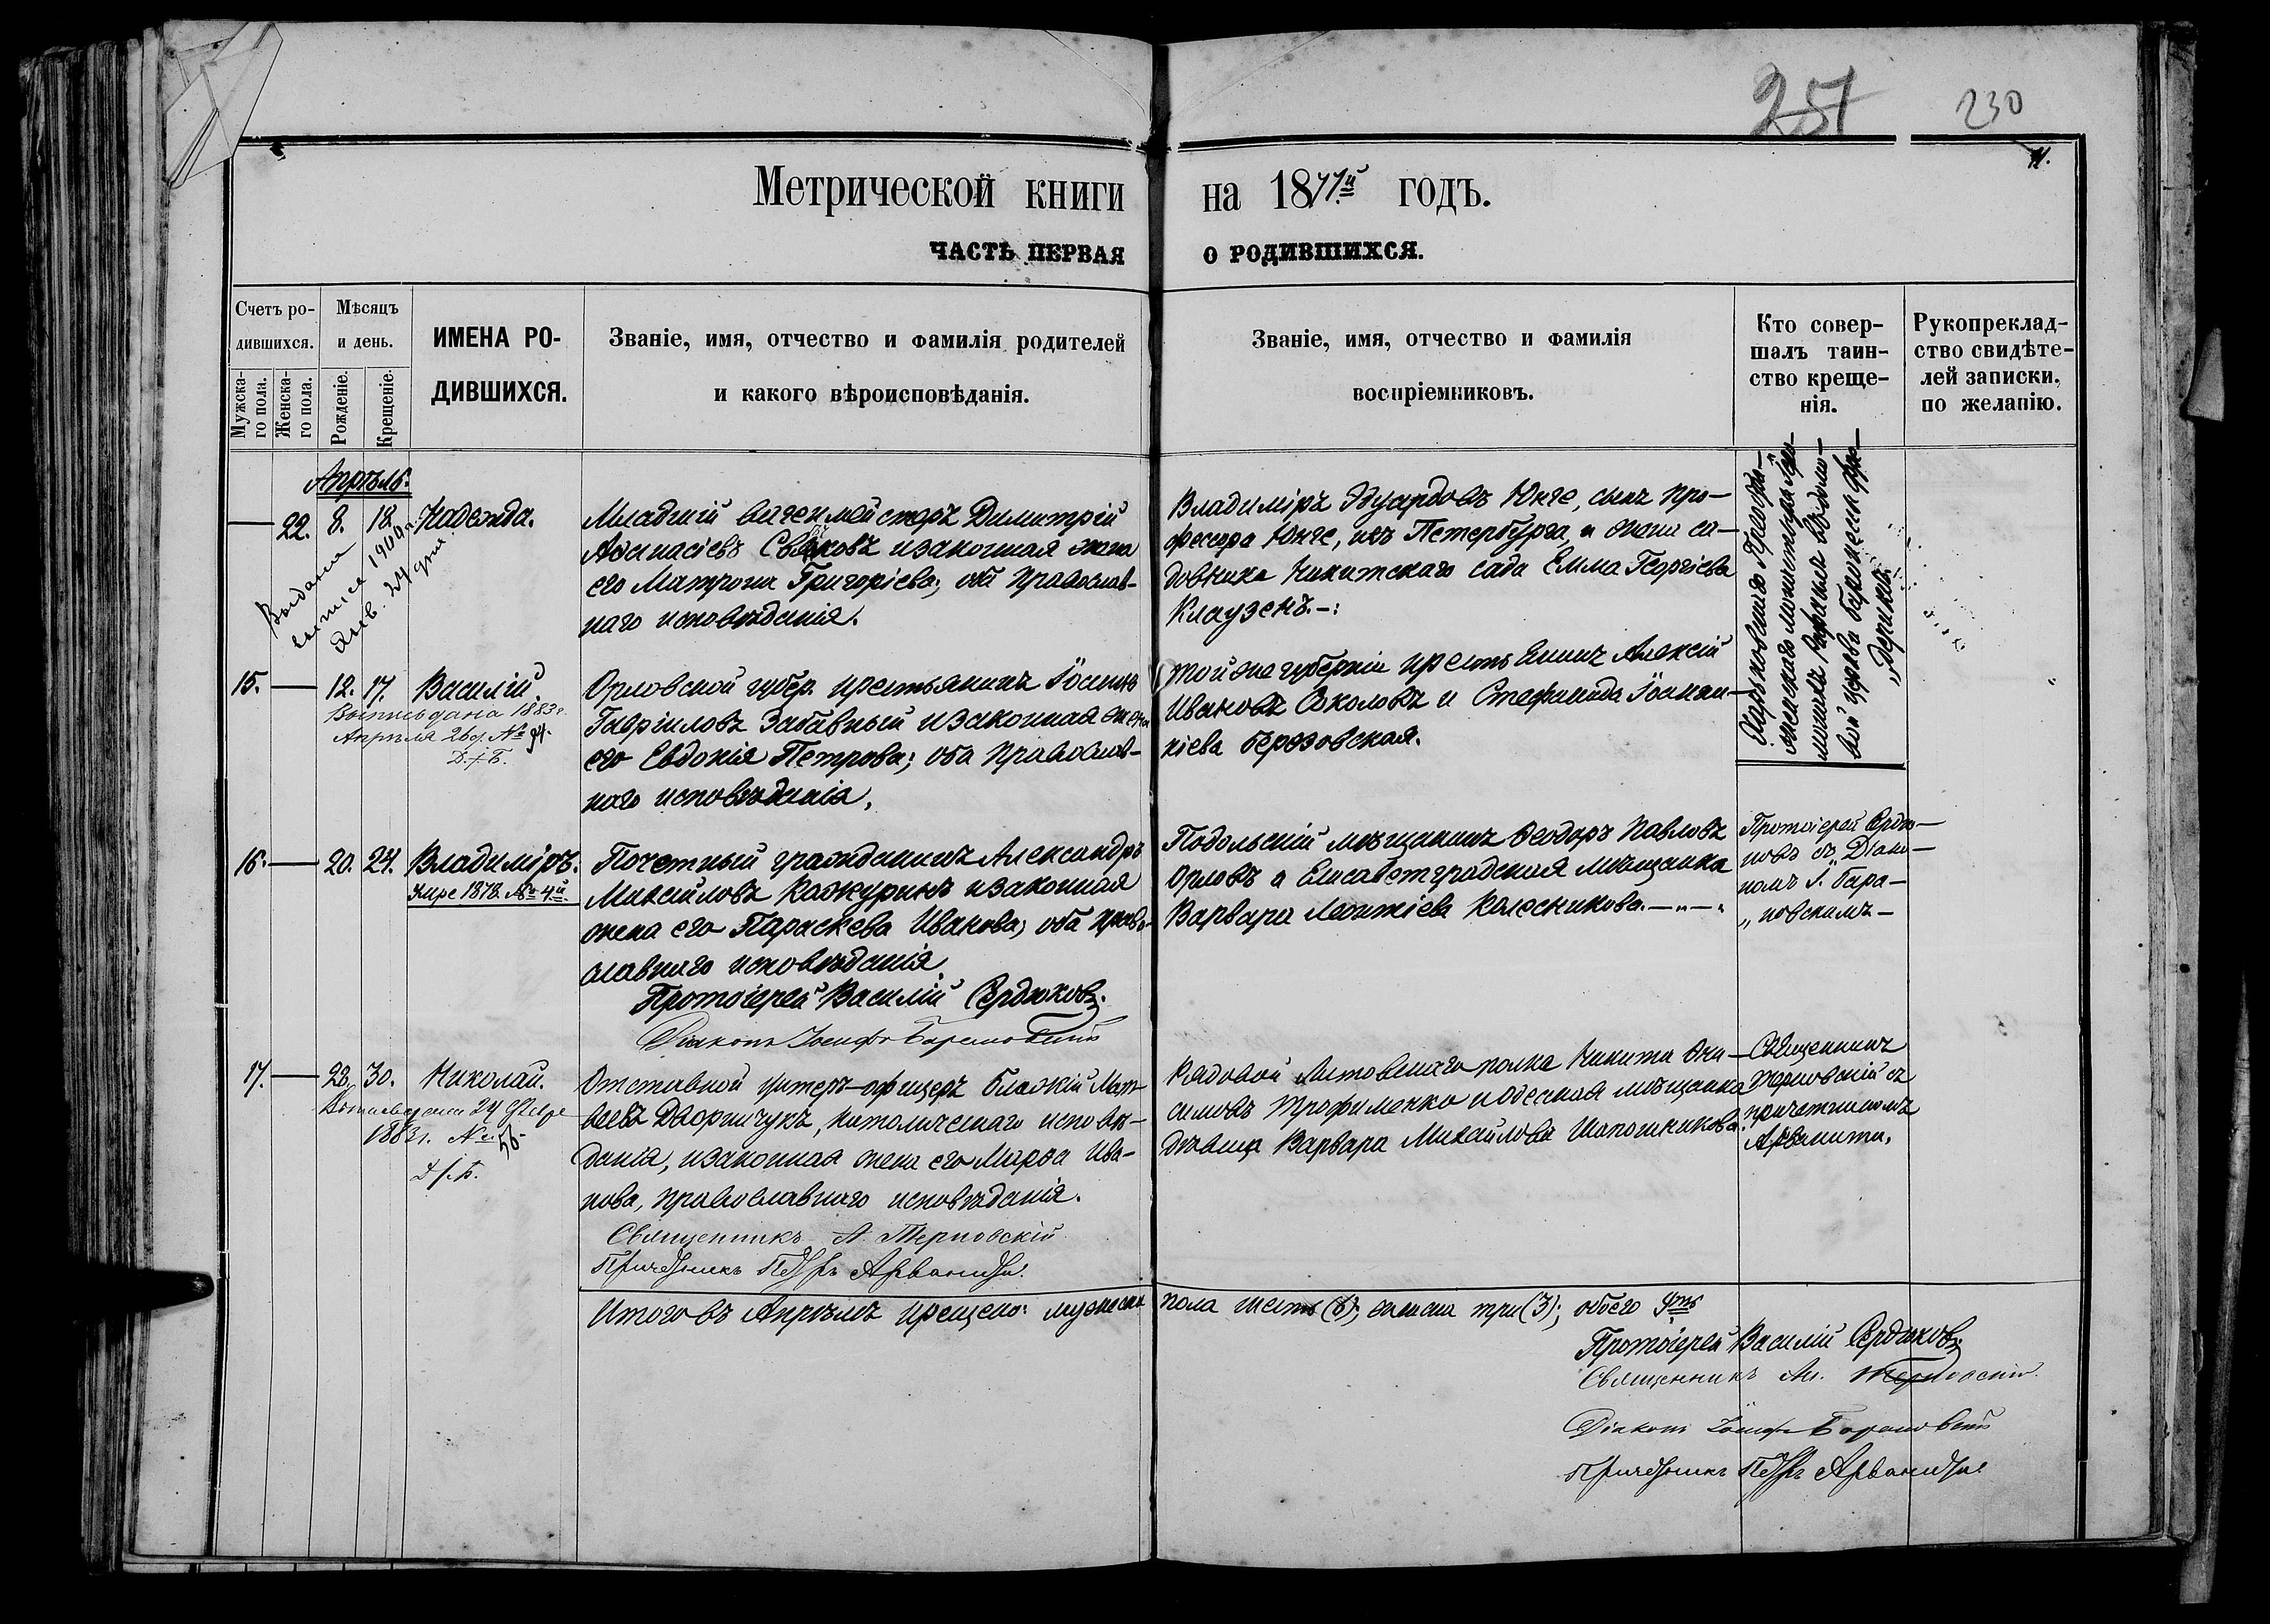 251
230
Метрической книги на 1877й годъ.
ЧАСТЬ ПЕРВАЯ О РОДИВШИХСЯ.
Счетъ ро-
дившихся.
Мужска-
го пола.
Женска-
го пола.
Мѣсяцъ
и день.
Рожденіе.
Крещеніе.
ИМЕНА РО-
ДИВШИХСЯ.
Званіе, имя, отчество и фамилія родителей
и какого вѣроисповѣданія.
Званіе, имя, отчество и фамилія
воспріемниковъ.
Кто совер-
шалъ таин-
ство креще-
нія.
Рукоприклад-
ство свидѣте-
лей записки,
по желанію.
Апрѣль.
22. 8. 18. Надежда.
Выдана
выписъ 1900 г.
Янв. 24 дня.
Младшій вагенмейстеръ Димитрій
Аѳанасіевъ изаконная жена
его Матрона Григоріева; оба православ-
наго исповѣданія.
Владиміръ Эдуардовъ Юнге, сынъ про-
фессора Юнге, изъ Петербурга, и жена са-
довника Никитскаго сада Емма Георгіева
Клаузенъ.
15. 12. 17. Василій.
Выпись дана 1883 г.
Апрѣля 26 д. №
Орловской губер. крестьянинъ Іоаннъ
Гавріиловъ Забавный изаконная жена
его Евдокія Петрова; оба православ-
наго исповѣданія.
Той же губерніи крестьянинъ Алексій
Ивановъ Соколовъ и Стефанида Іоанни-
кіева Березовская.
16. 20. 24. Владиміръ.
Умре 1878 № 4й.
Почетный гражданинъ Александръ
Михайловъ Кажуринъ изаконная
жена его Параскева Иванова; оба право-
славнаго исповѣданія.
Протоіерей Василій Сердюковъ.
Діаконъ Іосифъ Барановскій
Подольскій мѣщанинъ Ѳеодоръ Павловъ
Орловъ и Елисаветградская мѣщанка
Варвара Леонтіева Колесникова.
Протоіерей Сердю-
ковъ съ Діако-
номъ І. Бара-
новскимъ
17. 28. 30. Николай.
Выпись дана 24
1883 г. №
Отставной унтеръ-офицеръ Блажій Мат-
веевъ Дворничукъ, католическаго исповѣ-
данія, изаконная жена его Марѳа Ива-
нова, православнаго исповѣданія.
Священникъ А. Терновскій
Причетникъ Петръ Арванити.
Рядовой Литовскаго полка Никита Они-
симовъ Трофименко и одесская мѣщанка
дѣвица Варвара Михайлова Шапошникова.
Священникъ
Терновскій съ
причетникомъ
Арванити.
Итого въ Апрѣлѣ крещено: мужеска пола шесть (6); женска три (3); обоего 9ть
Протоіерей Василій Сердюковъ
Священникъ Ал. Терновскій.
Діаконъ Іосифъ Барановскій
Причетникъ Петръ Арванити